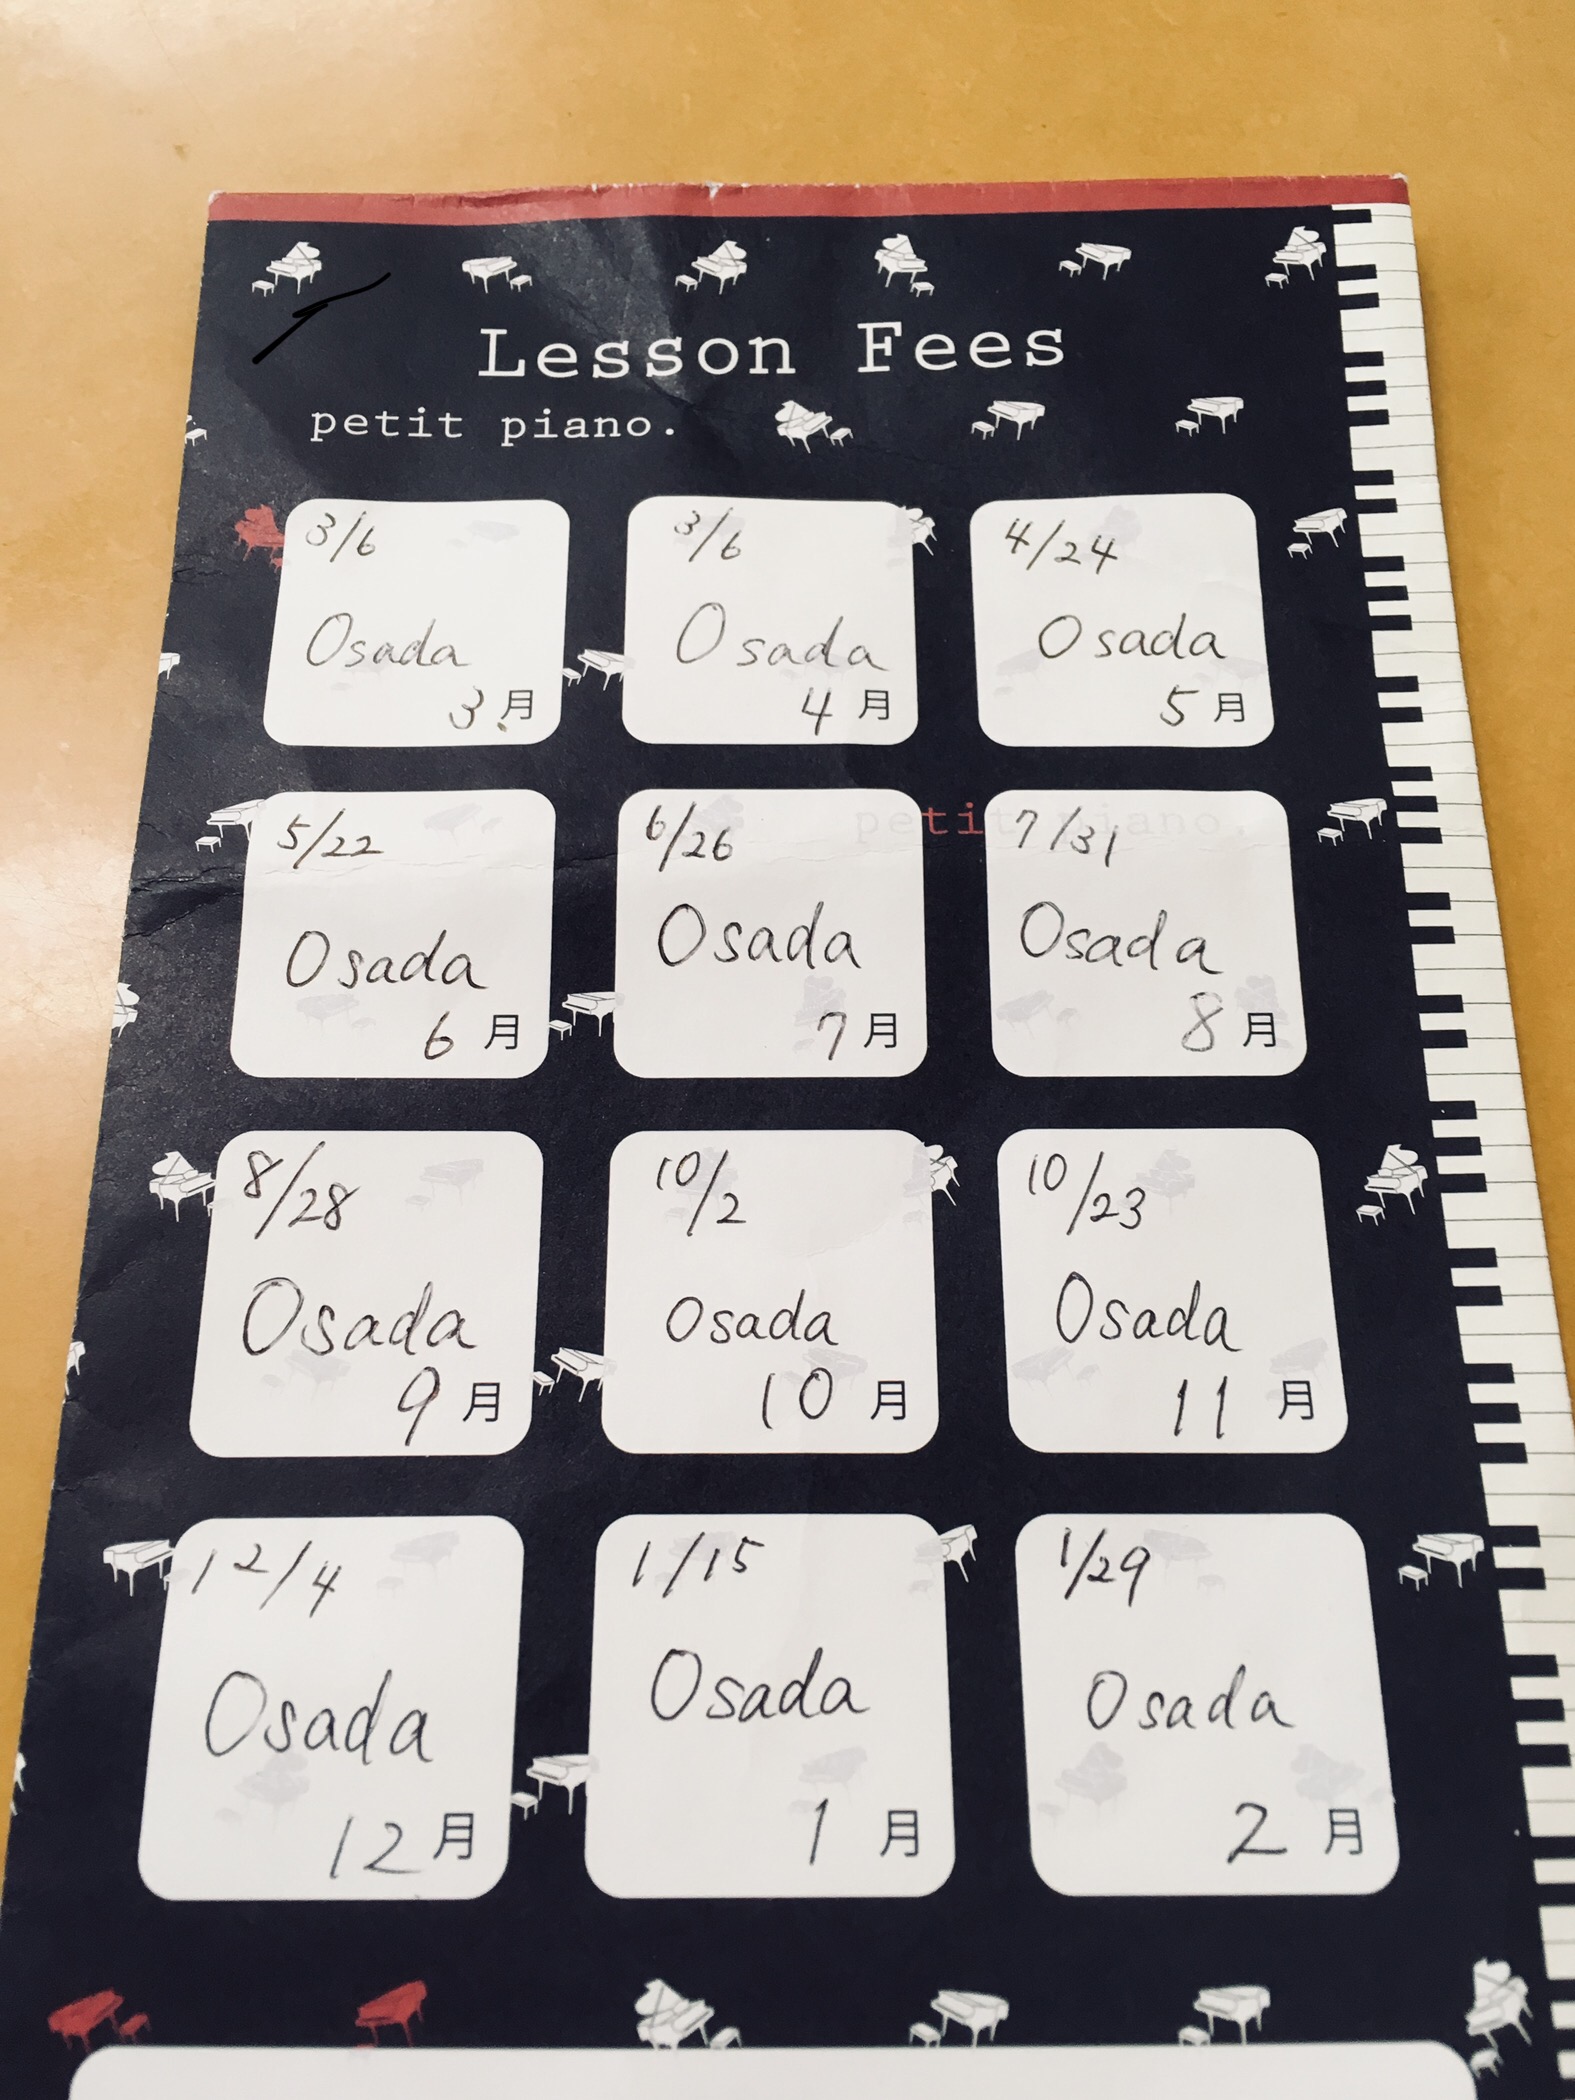 Lesson Fees
petit piano.
3/6
Osada
3月
3/6
Osada
4月
4/24
Osada
5月
5/22
Osada
6月
6/26
Osada
7月
petit piano.
7/31
Osada
8月
8/28
Osada
9月
10/2
Osada
10月
10/23
Osada
11月
12/4
Osada
12月
1/15
Osada
1月
1/29
Osada
2月